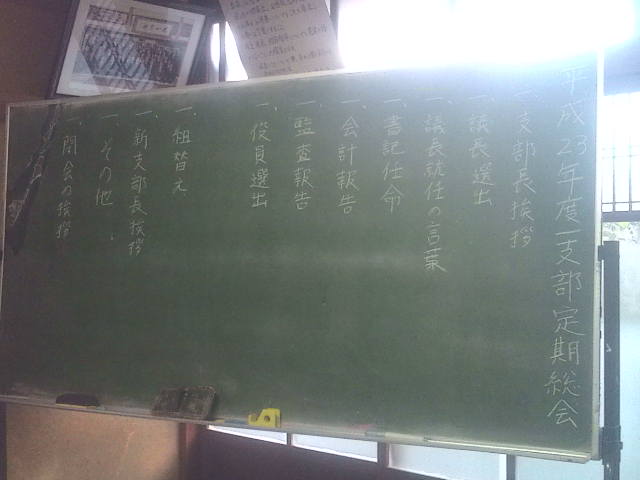 平成23年度一支部定期総会
一、支部長挨拶
一、議長選出
一、議長就任の言葉
一、書記任命
一、会計報告
一、監査報告
一、役員選出
一、組替え
一、新支部長挨拶
一、その他
一、閉会の挨拶